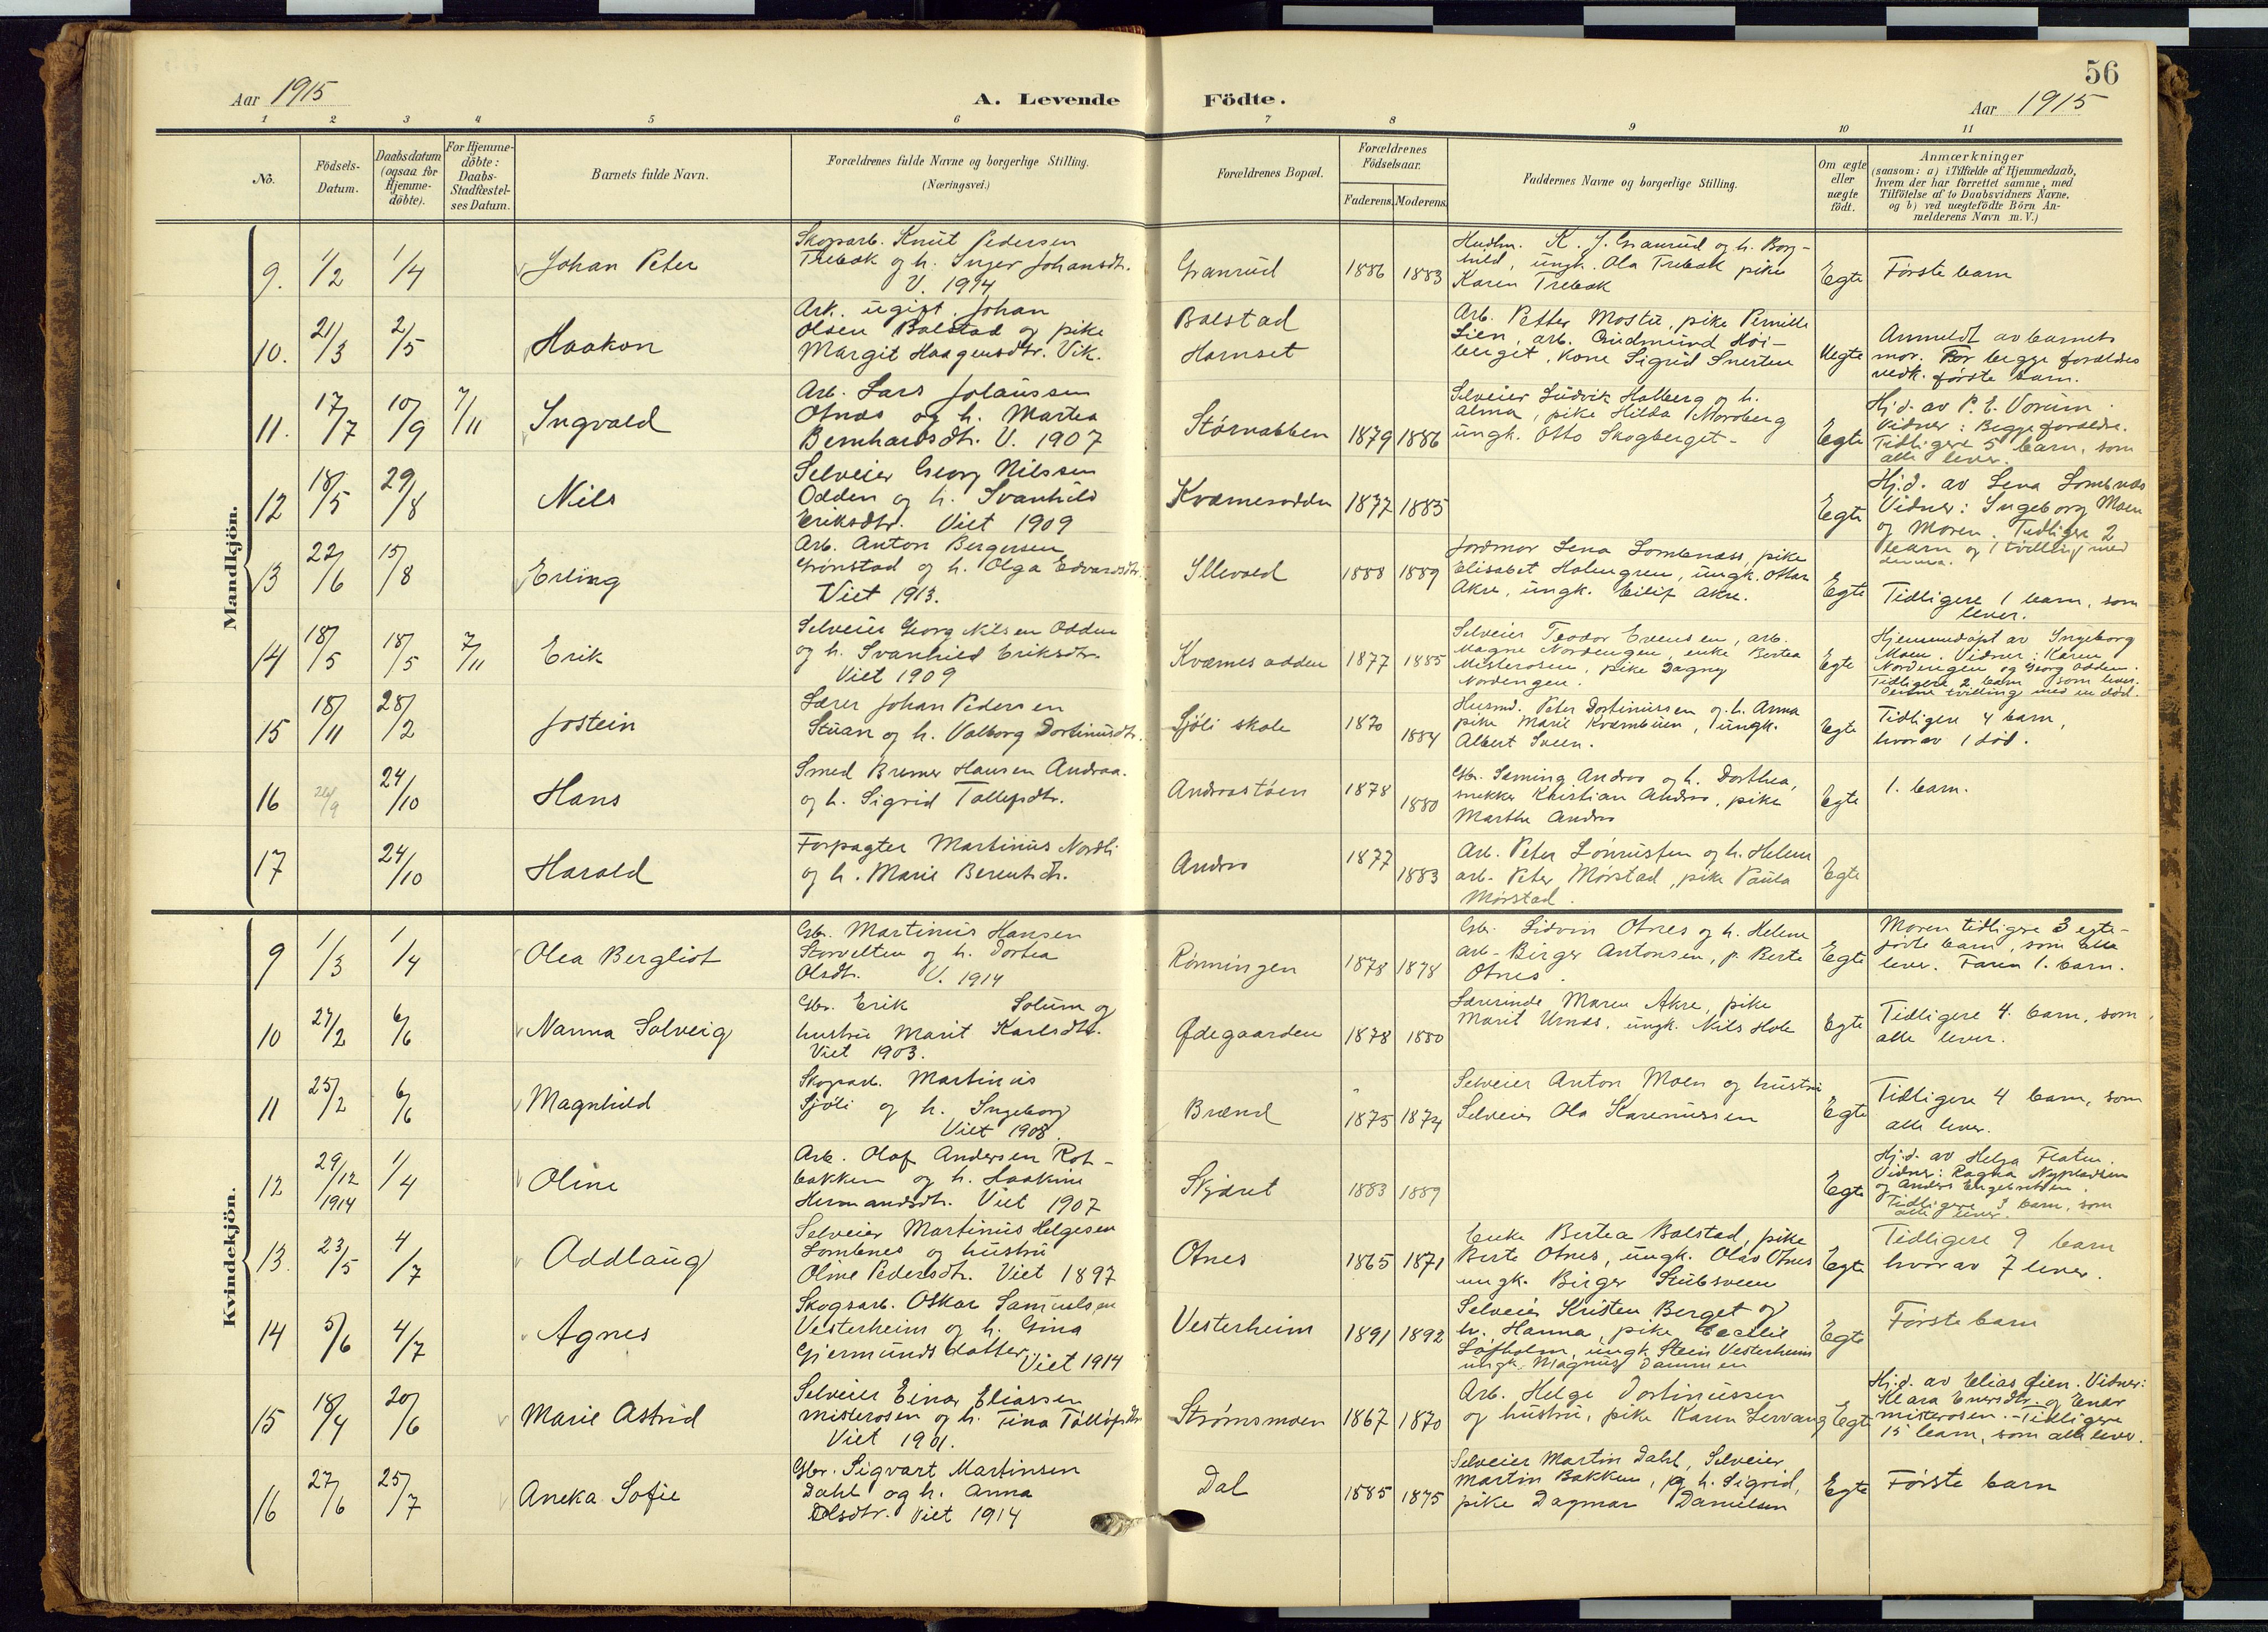 56
Aar 1915
A. Levende Födte.
Aar 1915
1 2 3 4 5 6 7 8 9 10 11
No.
Födsels-Datum.
Daabsdatum (ogsaa for Hjemme-döbte).
For Hjemme-döbte: Daabs-Stadfæstel-ses Datum.
Barnets fulde Navn.
Forældrenes fulde Navne og borgerlige Stilling.
(Næringsvei.)
Forældrenes Bopæl.
Forældrenes Födselsaar.
Faderens. Moderens.
Faddernes Navne og borgerlige Stilling.
Om ægte eller uægte födt.
Anmærkninger
(saasom: a) i Tilfælde af Hjemmedaab,
hvem der har forrettet samme, med
Tilföielse af to Daabsvidners Navne,
og b) ved uægtefödte Börn An-
melderens Navn m. V.)
Mandkjön.
9. 1/2 1/4 Johan Peter
Skogsarb. Knut Pedersen
Trebæk og h. Inger Johansdtr.
V. 1914
Granrud 1886 1883
Husm. K. J. Granrud og h. Borg-
hild, ungk. Ola Trebæk pike
Karen Trebæk
Egte Første barn
10. 21/3 2/5 Haakon
Arb. ugift. Johan
Olsen Bolstad og pike
Margit Haagensdtr. Vik.
Bolstad
Harnset
Arb. Petter Mostu, pike Pernille
Lien, arb. Gudmund Höi-
berget, kone Sigrid Snerten
Uegte
Anmeldt av barnets
mor. For begge forældres
vedk. første barn.
11. 17/7 10/9 7/11 Ingvald
Arb. Lars Jolaussen
Otnæs og h. Martea
Bernhardsdtr. V. 1907
Størvabben 1879 1886
Selveier Ludvik Halberg og h.
Alma, pike Hilda Mordberg
ungk. Otto Skogberget-
Egte
Hj.d. av P. E. Vorum.
Vidner: Begge forældre.
Tidligere 5 barn, som
alle lever.
12 18/5 29/8 Nils
Selveier Georg Nilssen
Odden og h. Svanhild
Eriksdtr. Viet 1909
Kværnesodden 1877 1885
Egte
Hj.d. av Lena Lombnæs
Vidner: Ingeborg Moen
og Moren. Tidligere 2
barn og 1 tvilling med
denne.
13 22/6 15/8 Erling
Arb. Anton Bergersen
Grönstad og h. Olga Edvardsdtr.
Viet 1913.
Illevold 1888 1889
Jordmor Lena Lombnæss, pike
Elisabet Holmgren, ungk. Ottar
Akre, ungk. Eilif Akre.
Egte
Tidligere 1 barn, som
lever.
14 18/5 18/5 7/11 Erik
Selveier Georg Nilsen Odden
og h. Svanhild Eriksdtr.
Viet 1909
Kværnesodden 1877 1885
Selveier Teodor Evensen, arb.
Magne Nordengen, enke Bertea
Misterosen, pike Dagny
Nordengen.
Egte
Hjemmedøpt av Ingeborg
Moen. Vidner: Karen
Nordengen og Georg Odden.
Tidligere 2 barn som lever.
Denne tvilling med en död.
15 18/11 28/2 Jostein
Lærer Johan Pedersen
Stuan og h. Valborg Dortinusdtr.
Sjöli skole 1870 1884
Husmd. Peter Dortinussen og h. Anna
pike Marie Kværnbuen, ungk.
Albert Sveen.
Egte
Tidligere 4 barn,
hvorav 1 død.
16 26/9 24/10 Hans
Smed Bremer Hansen Andraa.
og h. Sigrid Tollefsdtr.
Andraastöen 1878 1880
Gbr. Seming Andraa og h. Dorthea,
snekker Khistian Andraa, pike
Marthe Andraa
Egte 1. barn.
17 24/10 Harald
Forpagter Martinus Nordli
og h. Marie Berentsdtr.
Andraa 1877 1883
Arb. Peter Lönnusten og h. Helene
arb. Peter Mörstad, pike Paula
Mörstad.
Egte
Kvindekjön.
9 1/3 1/4 Olea Bergliot
Gbr. Martinus Hansen
Storvelten og h. Dortea
Olsdtr. V. 1914
Rönningen 1878 1878
Gbr. Sidvin Otnes og h. Helene
arb. Birger Antonsen, p. Berte
Otnes
Egte
Moren tidligere 3 egte-
födte barn, som alle
lever. Faren 1. barn.
10 27/2 6/6 Nanna Solveig
Gbr. Erik Solum og
hustru Marit Karlsdtr.
Viet 1903.
Ødegaarden 1878 1880
Lærerinde Maren Akre, pike
Marit Urnæs, ungk. Nils Hole
Egte
Tidligere 4 barn, som
alle lever.
11 25/2 6/6 Magnhild
Skogsarb. Martinus
Sjöli og h. Ingeborg
Viet 1908.
Brænd 1875 1874
Selveier Anton Moen og hustru
Selveier Ola Karenussen
Egte
Tidligere 4 barn, som
alle lever.
12 29/12 1914 1/4 Oline
Arb. Olaf Andersen Rot-
bakken og h. Haakine
Hermandsdtr. Viet 1907
Skjæret 1883 1889
Egte
Hj.d. av Helga Flaten.
Vidner: Ragna Nyplads
og Anders Engebretsen.
Tidligere 3 barn, som
alle lever.
13. 23/5 4/7 Oddlaug
Selveier Martinus Helgesen
Lombnes og hustru
Oline Pedersdtr. Viet 1897
Otnes 1865 1871
Enke Bertea Bolstad, pike
Berte Otnes, ungk. Olav Otnes
ungk. Birger Stubsveen
Egte
Tidligere 9 barn
hvorav 7 lever.
14 5/6 4/7 Agnes
Skogsarb. Oskar Samuelsen
Vesterheim og h. Gina
Gjermundsdatter. Viet 1914
Vesterheim 1891 1892
Selveier Kristen Berget og
h. Hanna, pike Cecilie
Løfholm, ungk. Stein Vesterheim
ungk. Magnus Dammen
Egte Første barn
15 18/4 20/6 Marie Astrid
Selveier Einar Eliassen
Misterosen og h. Tina Tollefsdtr
Viet 1901.
Strømsmoen 1867 1870
Arb. Helge Dortinussen
og hustru, pike Karen Lervang
Egte
Hj.d. av Elias Lien. Vidner:
Klara Enersdtr. og Enar
Misterosen. - Tidligere
15 barn, som alle lever.
16 27/6 25/7 Aneka Sofie
Gbr. Sigvart Martinsen
Dahl og h. Anna
Olsdtr. Viet 1914
Dal 1885 1875
Selveier Martin Dahl, Selveier
Martin Bakken, og h. Sigrid,
pike Dagmar Danielsen
Egte Første barn